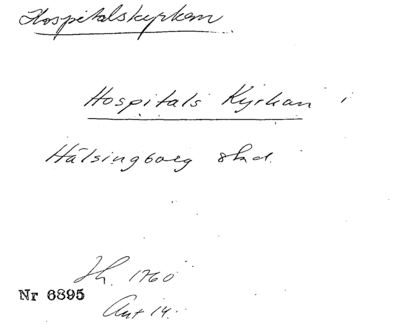 Hospitalskyrkan
Hospitals Kyrkan i
Hälsingborg stad.
Th. 1760
Nr 6895
Ant 14.